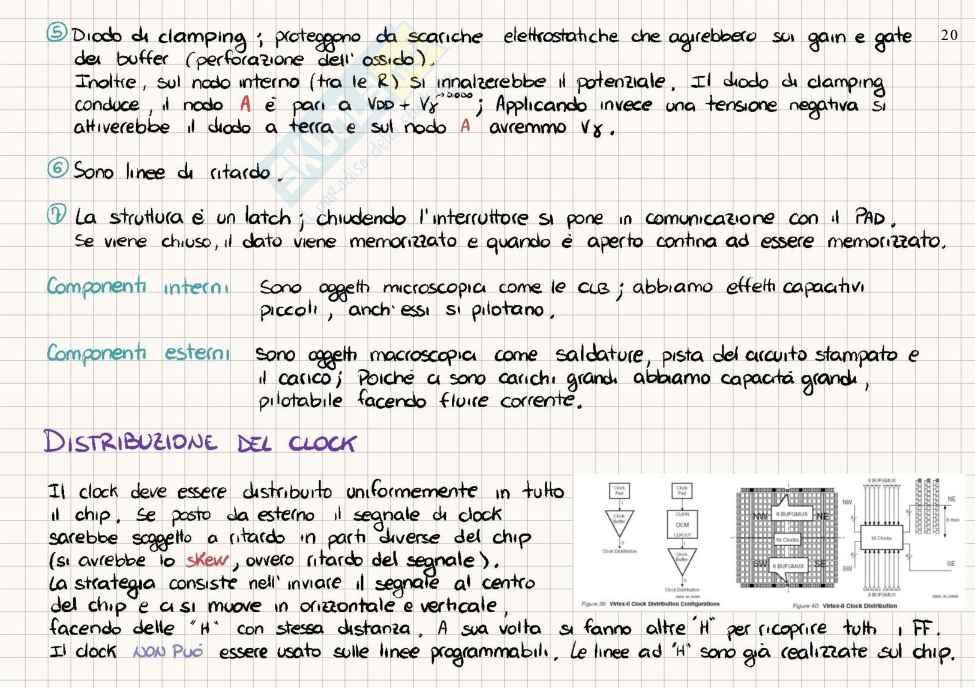 20
⑤ Diodo di clamping ; proteggono da scariche elettrostatiche che agirebbero sui gain e gate
dei buffer (perforazione dell'ossido).
Inoltre, sul nodo interno (tra le R) si innalzerebbe il potenziale. Il diodo di clamping
conduce, il nodo A è pari a VDD + Vγ ; Applicando invece una tensione negativa si
attiverebbe il diodo a terra e sul nodo A avremmo Vγ.
⑥ Sono linee di ritardo.
⑦ La struttura è un latch ; chiudendo l'interruttore si pone in comunicazione con il PAD.
Se viene chiuso, il dato viene memorizzato e quando è aperto contina ad essere memorizzato.
Componenti interni Sono oggetti microscopici come le CLB ; abbiamo effetti capacitivi
piccoli, anch'essi si pilotano.
Componenti esterni Sono oggetti macroscopici come saldature, pista del circuito stampato e
il carico ; Poiché ci sono carichi grandi abbiamo capacità grandi,
pilotabile facendo fluire corrente.
DISTRIBUZIONE DEL CLOCK
Il clock deve essere distribuito uniformemente in tutto
il chip. Se posto da esterno il segnale di clock
sarebbe soggetto a ritardo in parti diverse del chip
(si avrebbe lo skew, ovvero ritardo del segnale).
La strategia consiste nell'inviare il segnale al centro
del chip e ci si muove in orizzontale e verticale,
facendo delle "H" con stessa distanza. A sua volta si fanno altre "H" per ricoprire tutti i FF.
Il clock NON PUÒ essere usato sulle linee programmabili. Le linee ad "H" sono già realizzate sul chip.
Clock
Pad
Clock
Buffer
Clock Distribution
Clock
Pad
CLKIN
DCM
CLKOUT
Clock
Buffer
Clock Distribution
Figure 39: Virtex-II Clock Distribution Configurations
NW
NE
8 BUFGMUX
16 Clocks
8 BUFGMUX
SW
SE
8 BUFGMUX
NW
NE
8 max
16 Clocks
SW
SE
8 BUFGMUX
Figure 40: Virtex-II Clock Distribution